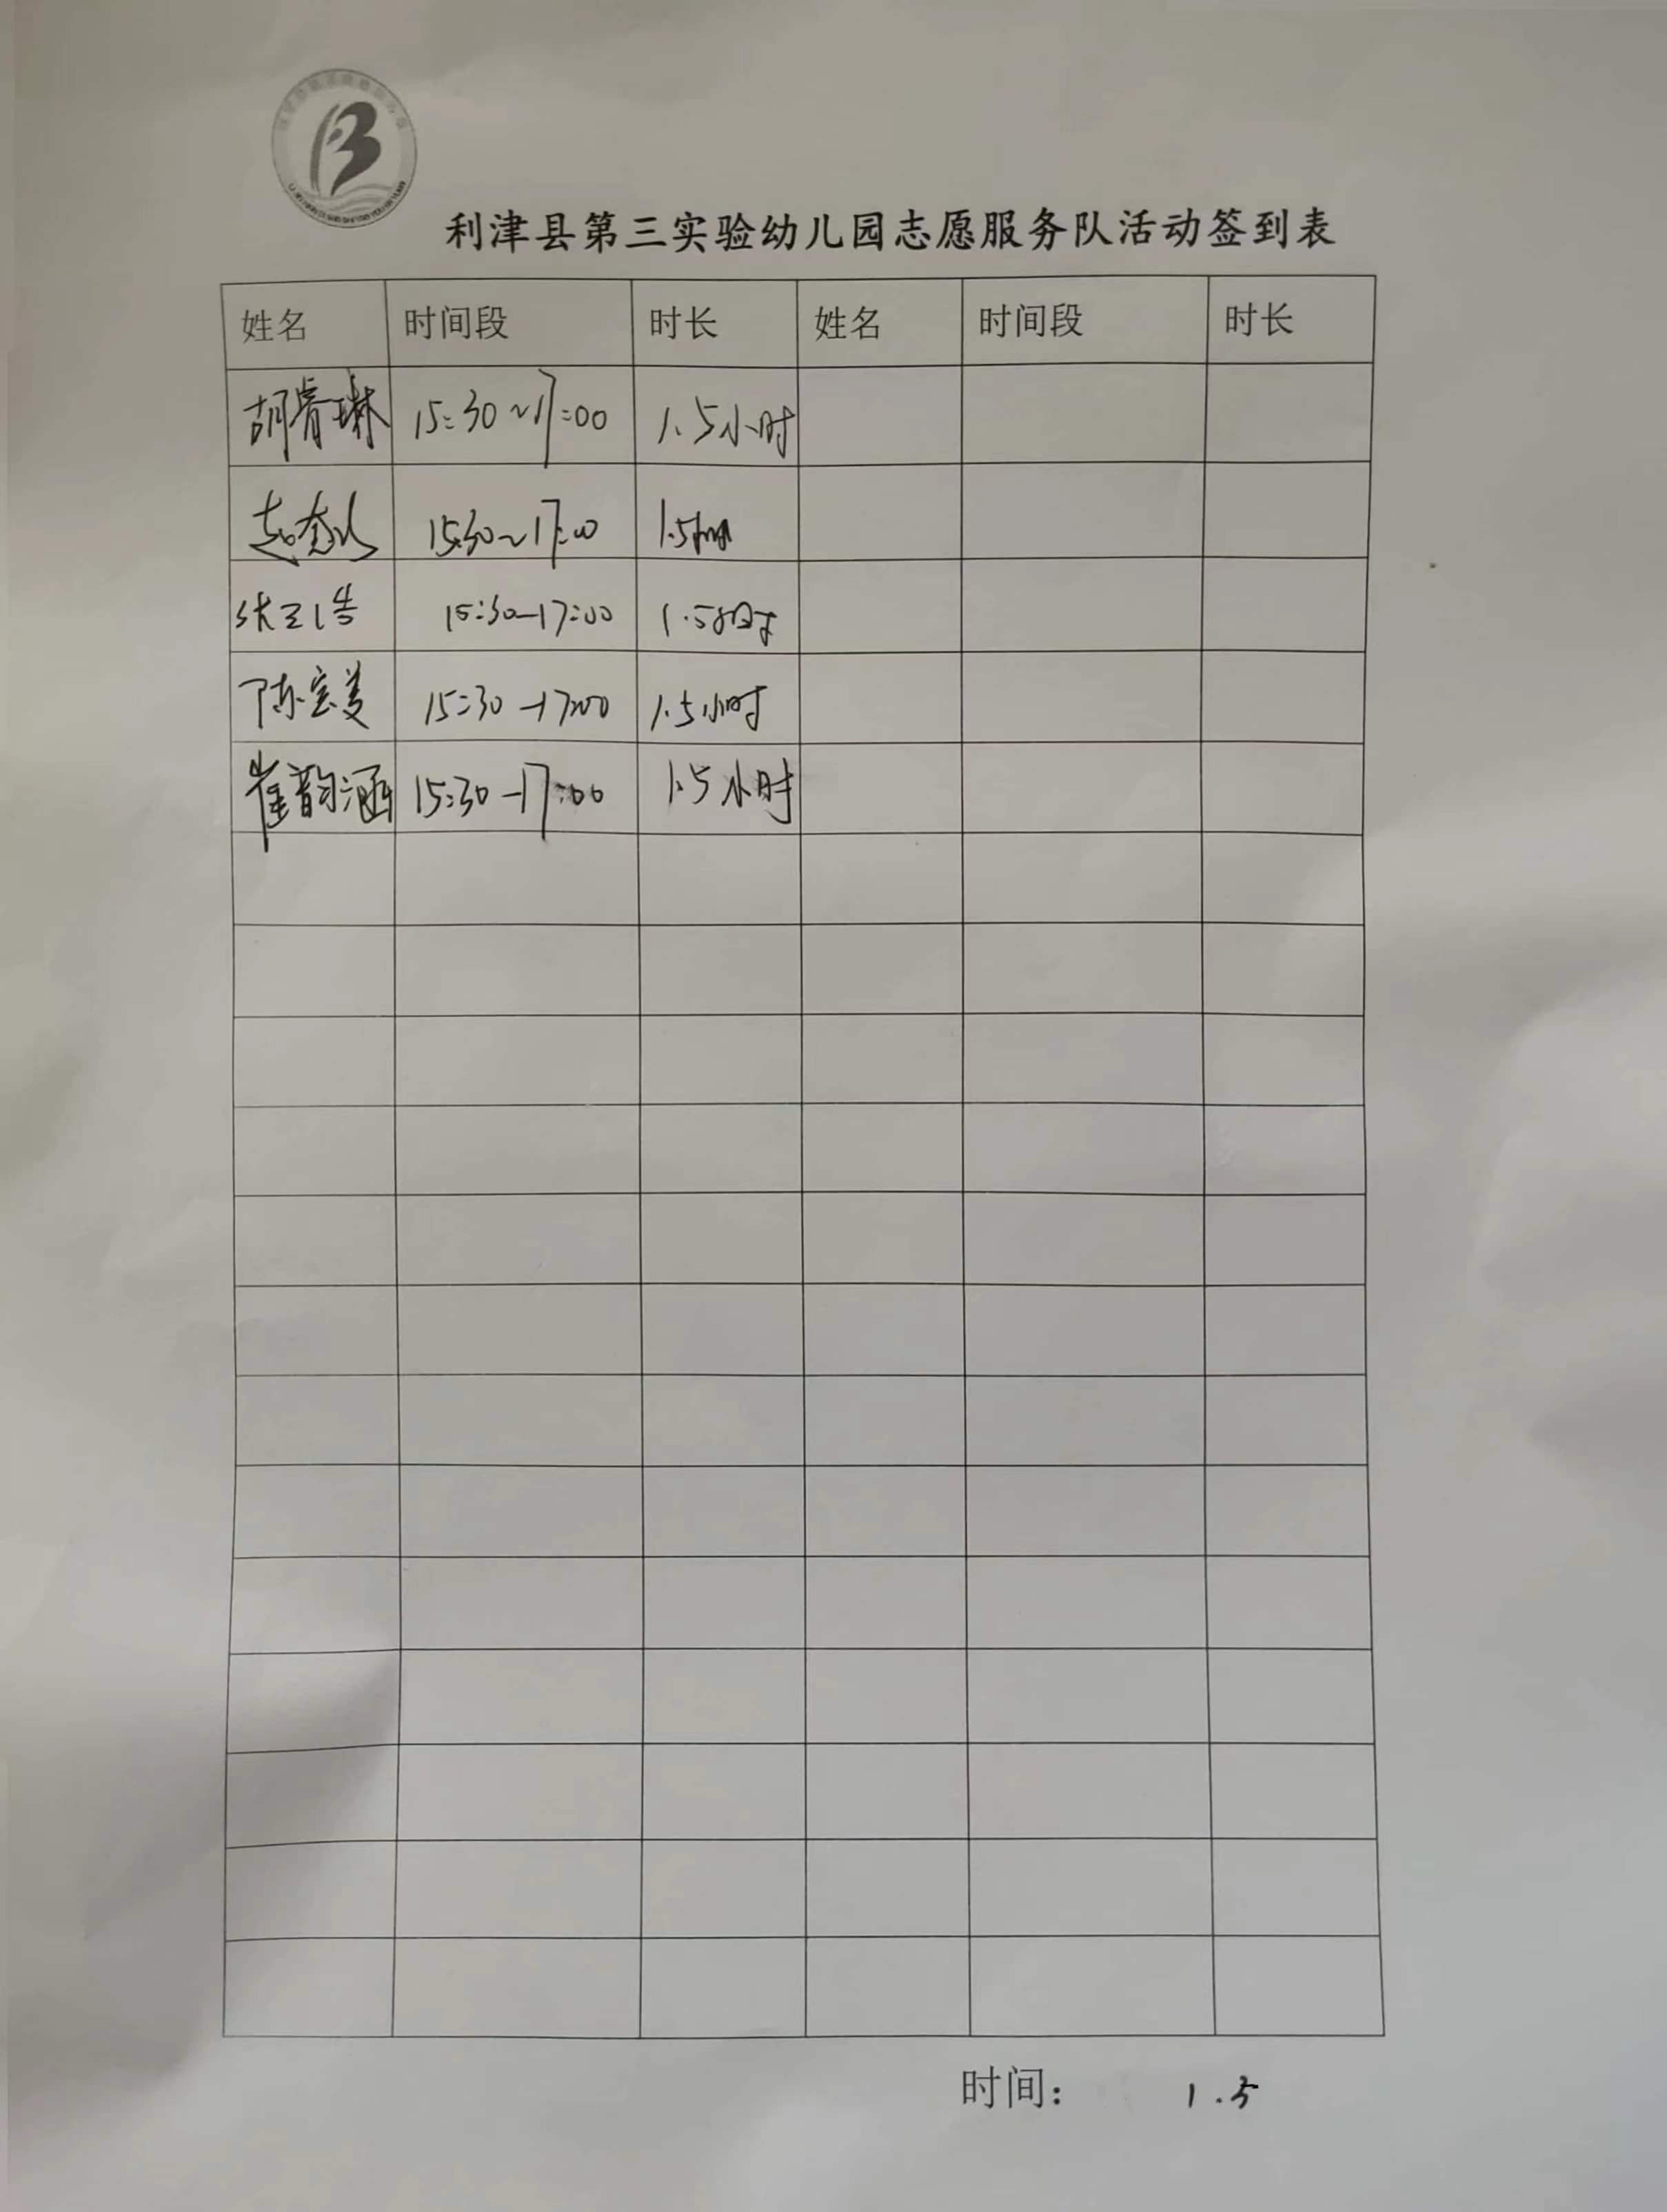 利津县第三实验幼儿园志愿服务队活动签到表
姓名 时间段 时长 姓名 时间段 时长
胡睿琳 15:30~17:00 1.5小时
15:30~17:00 1.5小时
15:30-17:00 1.5小时
陈宝美 15:30-17:00 1.5小时
崔韵涵 15:30-17:00 1.5小时
时间： 1.5